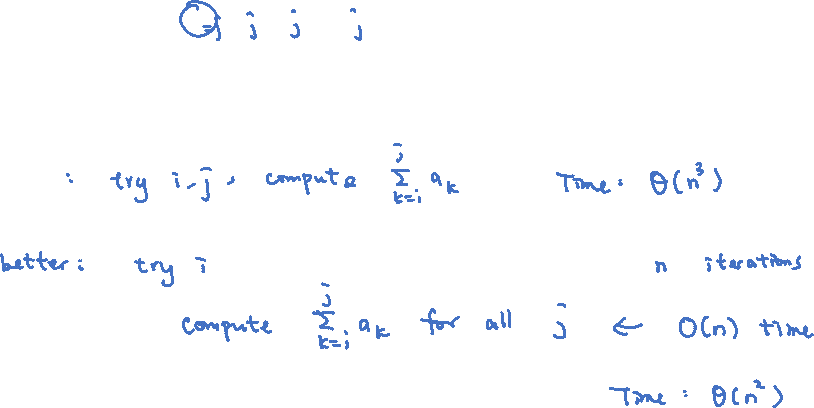 j j j j
: try i, j, compute \sum_{k=i}^{j} a_k Time: Θ(n^3)
better: try i n iterations
compute \sum_{k=i}^{j} a_k for all j ← O(n) time
Time: Θ(n^2)